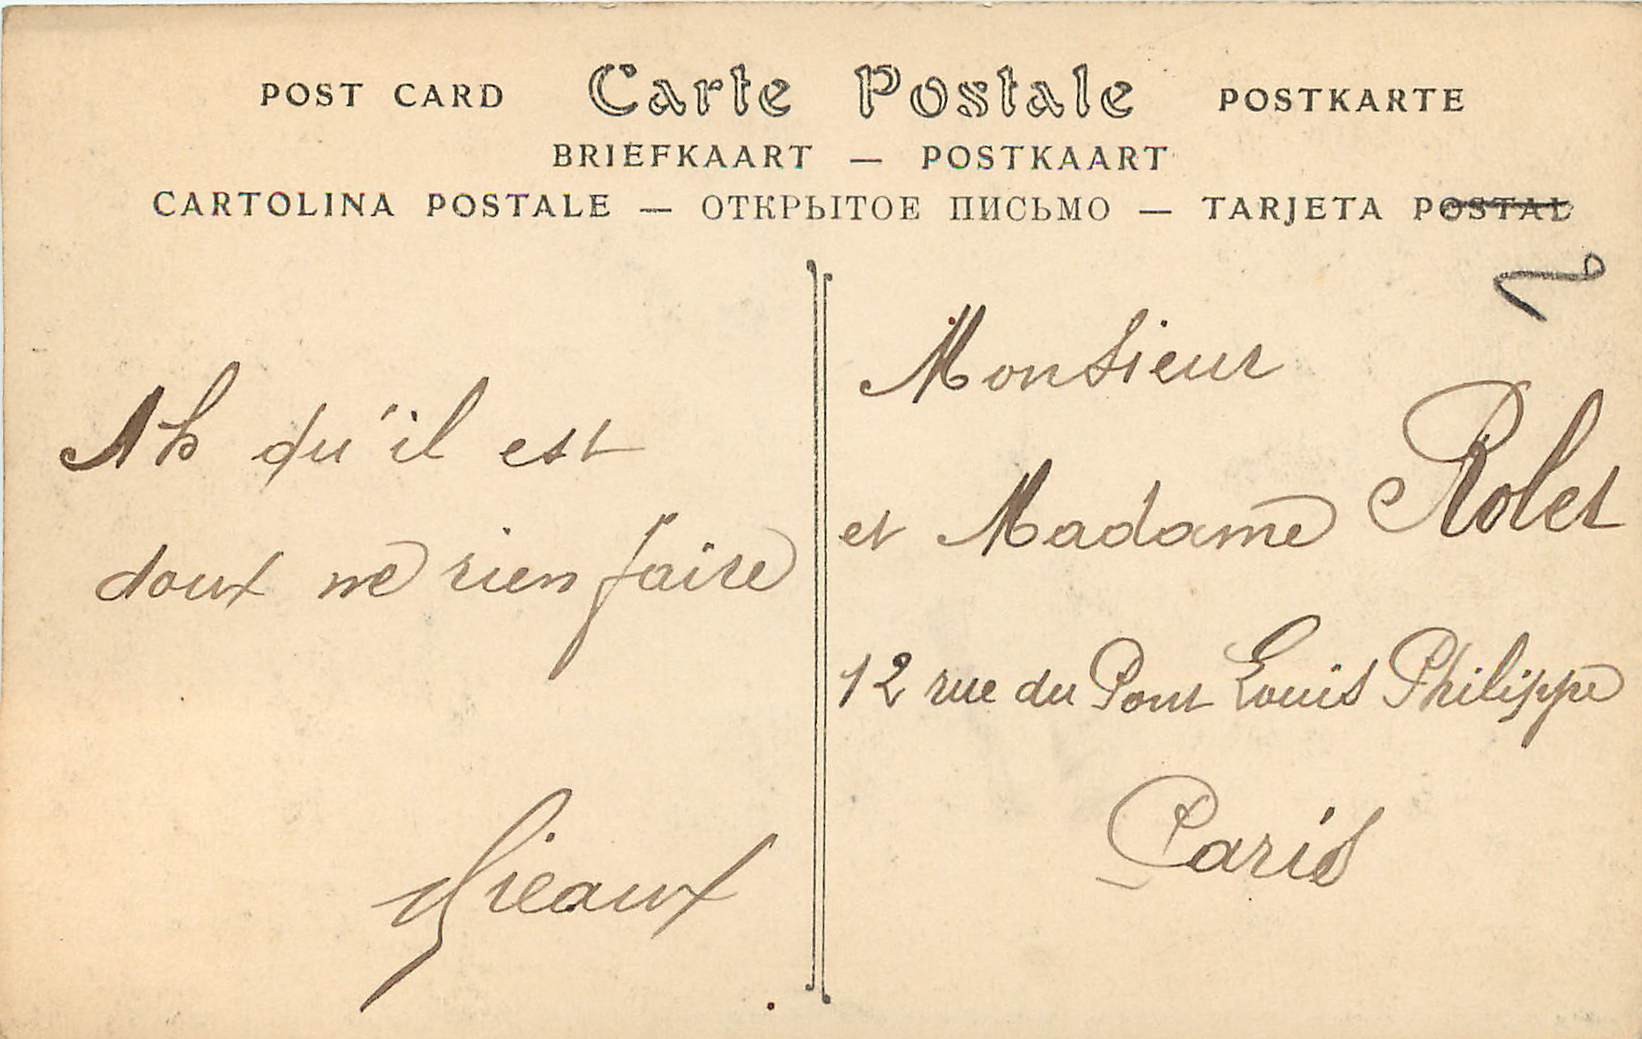 POST CARD Carte Postale POSTKARTE
BRIEFKAART — POSTKAART
CARTOLINA POSTALE — ОТКРЫТОЕ ПИСЬМО — TARJETA POSTAL
Ah qu'il est
doux ne rien faire
Monsieur
et Madame Rolet
12 rue du Pont Louis Philippe
Paris